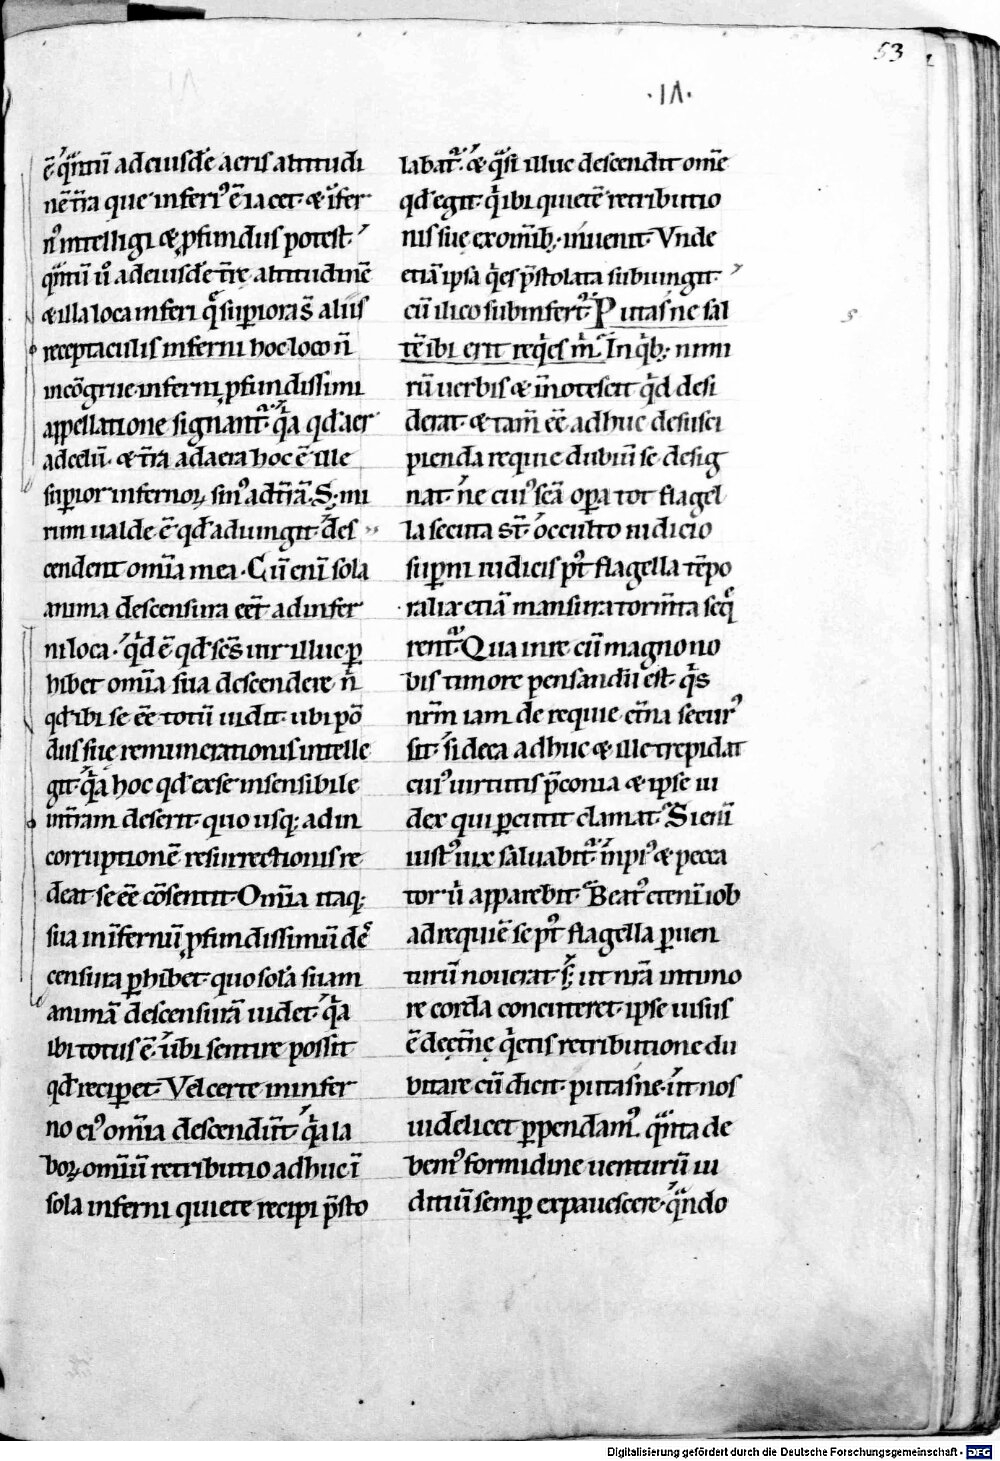 53
·IΛ·
ē· q̄ntū ad eiusdē aeris altitudi
nē tr̄a que inferiꝰ ē iacet· ⁊ īfer
nꝰ intelligi ⁊ ꝓfundus potest·
q̄ntū ů ad eiusdē tr̄e altitudinē
⁊ illa loca inferi q̊ suꝑiora s̄ aliis
receptaculis inferni hoc loco n̄
incōgrue inferni ꝓfundissimi
appellatione signant᷑· q̄a qd̄ aer
ad celū· ⁊ tr̄a ad aera hoc ē ille
suꝑior infernoꝝ sinꝰ ad tr̄ā. S; mi
rum ualde ē qd̄ adiungit· des
cendent om̄ia mea· Cū eni sola
anima descensura eēt ad infer
ni loca· q̇d ē qd̄ sc̄s uir illuc ꝑ
hibet om̄ia sua descendere n̄
qd̄ ibi se eē totū uidit· ubi pō
dus sue remunerationis intelle
git· q̄a hoc qd̄ ex se insensibile
int̄ram deserit· quo usq; ad in
corruptionē resurrectionis re
deat se eē cōsentit· Om̄ia itaq;
sua in īfernū ꝓfundissimū dē
censura ꝑhibet· quo solā suam
animā descensurā uidet· q̄a
ibi totus ē· ubi sentire possit
qd̄ reciꝑet· Vel certe in infer
no eiꝰ om̄ia descendūt· q̄a la
boꝝ omīū retributio adhuc ī
sola inferni quiete recipi p̄sto
labat᷑· ⁊ q̄si illuc descendit om̄e
qd̄ egit· q̇ ibi quietē retributio
nis sue ex om̄ib; inuenit· Vnde
etiā ipsa q̇es p̄stolata subiungit·
cū ilico subinfert᷑· Putasne sal
tē ibi erit req̇es m̊· In q̇b; nimi
rū uerbis ⁊ īnotescit q̇d desi
derat· ⁊ tam̄ eē adhuc de susci
pienda requie dubiū se desig
nat· ne cuiꝰ sc̄a oꝑa tot flagel
la secuta st̄· occulto iudicio
suꝑni iudicis pꝰt flagella tēpo
ralia etiā mansura torm̄ta seq̊
rent᷑· Qua in re cū magno no
bis timore pensandū est· q̇s
nr̄m iam de requie et̄na securꝰ
sit· si de ea adhuc ⁊ ille trepidat
cuiꝰ uirtutis p̄conia ⁊ ipse iu
dex qui ꝑcutit clamat· Si eni
iustꝰ uix saluabit᷑· īpiꝰ ⁊ pecca
tor u̇ apparebit· Beatꝰ eteni iob
ad requiē se pꝰt flagella ꝑuen
turū nouerat· s; ut nr̄a in timo
re corda concuteret· ipse uisus
ē de et̄ne q̇etis retributione du
bitare cū dicit· putasne· ut nos
uidelicet ꝑpendamꝰ· q̄nta de
bemꝰ formidine uenturū iu
ditiū semꝑ expauescere· q̄ndo
s
Digitalisierung gefördert durch die Deutsche Forschungsgemeinschaft - DFG